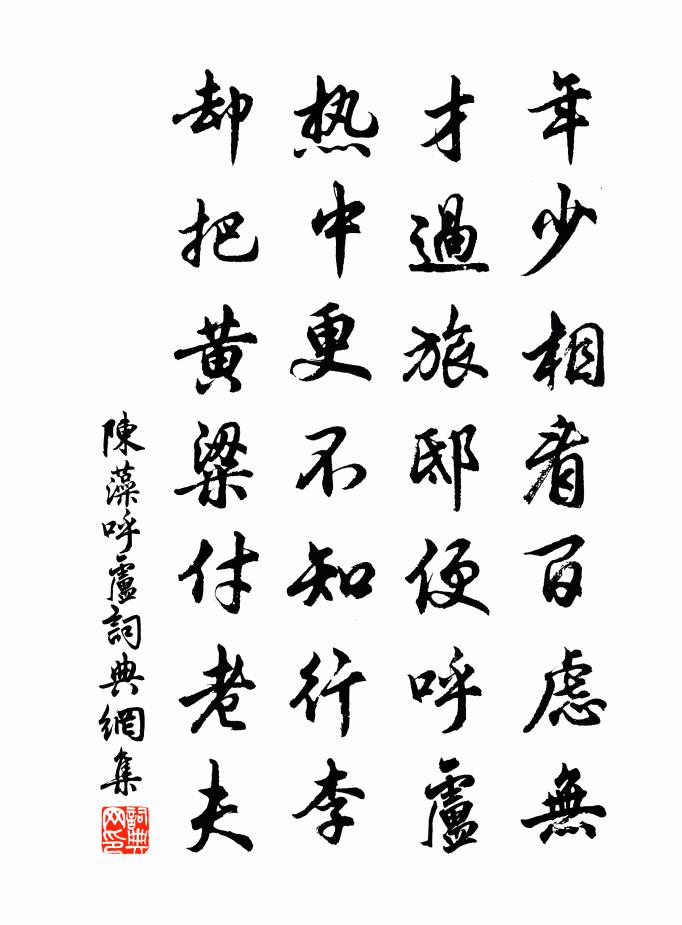 年少相看百慮無
才過旅邸便呼盧
热中更不知行李
却把黄粱付老夫
陳藻呼盧詞典網集
詞典网印